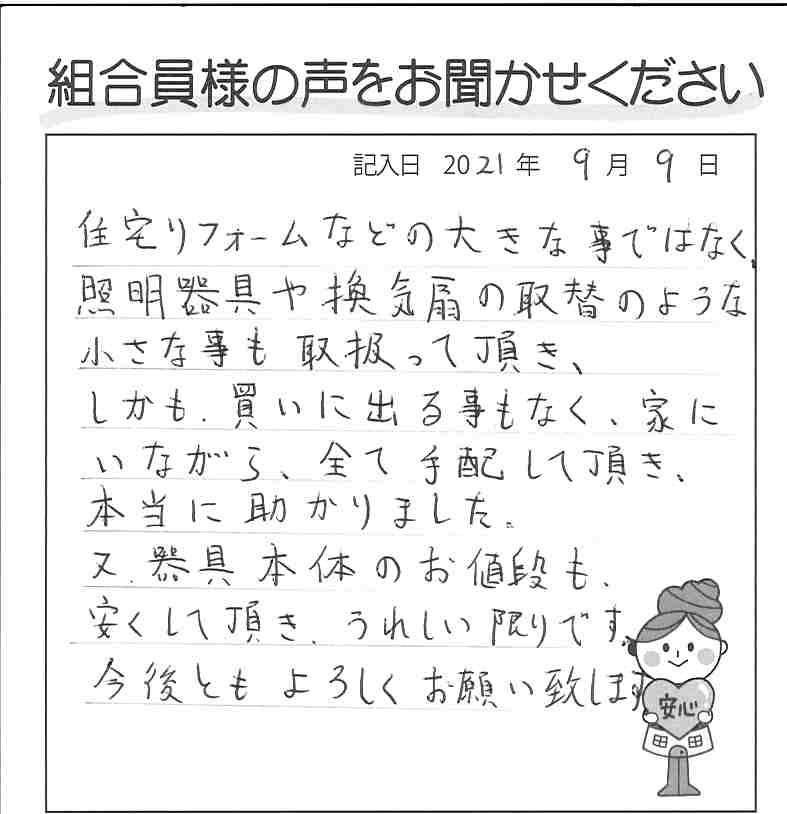 組合員様の声をお聞かせください
記入日 2021年 9月 9日
住宅リフォームなどの大きな事ではなく、
照明器具や換気扇の取替のような
小さな事も取扱って頂き、
しかも、買いに出る事もなく、家に
いながら、全て手配して頂き、
本当に助かりました。
又、器具本体のお値段も、
安くして頂き、うれしい限りです。
今後ともよろしくお願い致します
安心